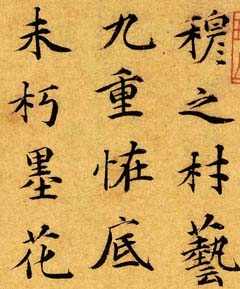 穆之材藝
九重恠底
未朽墨花